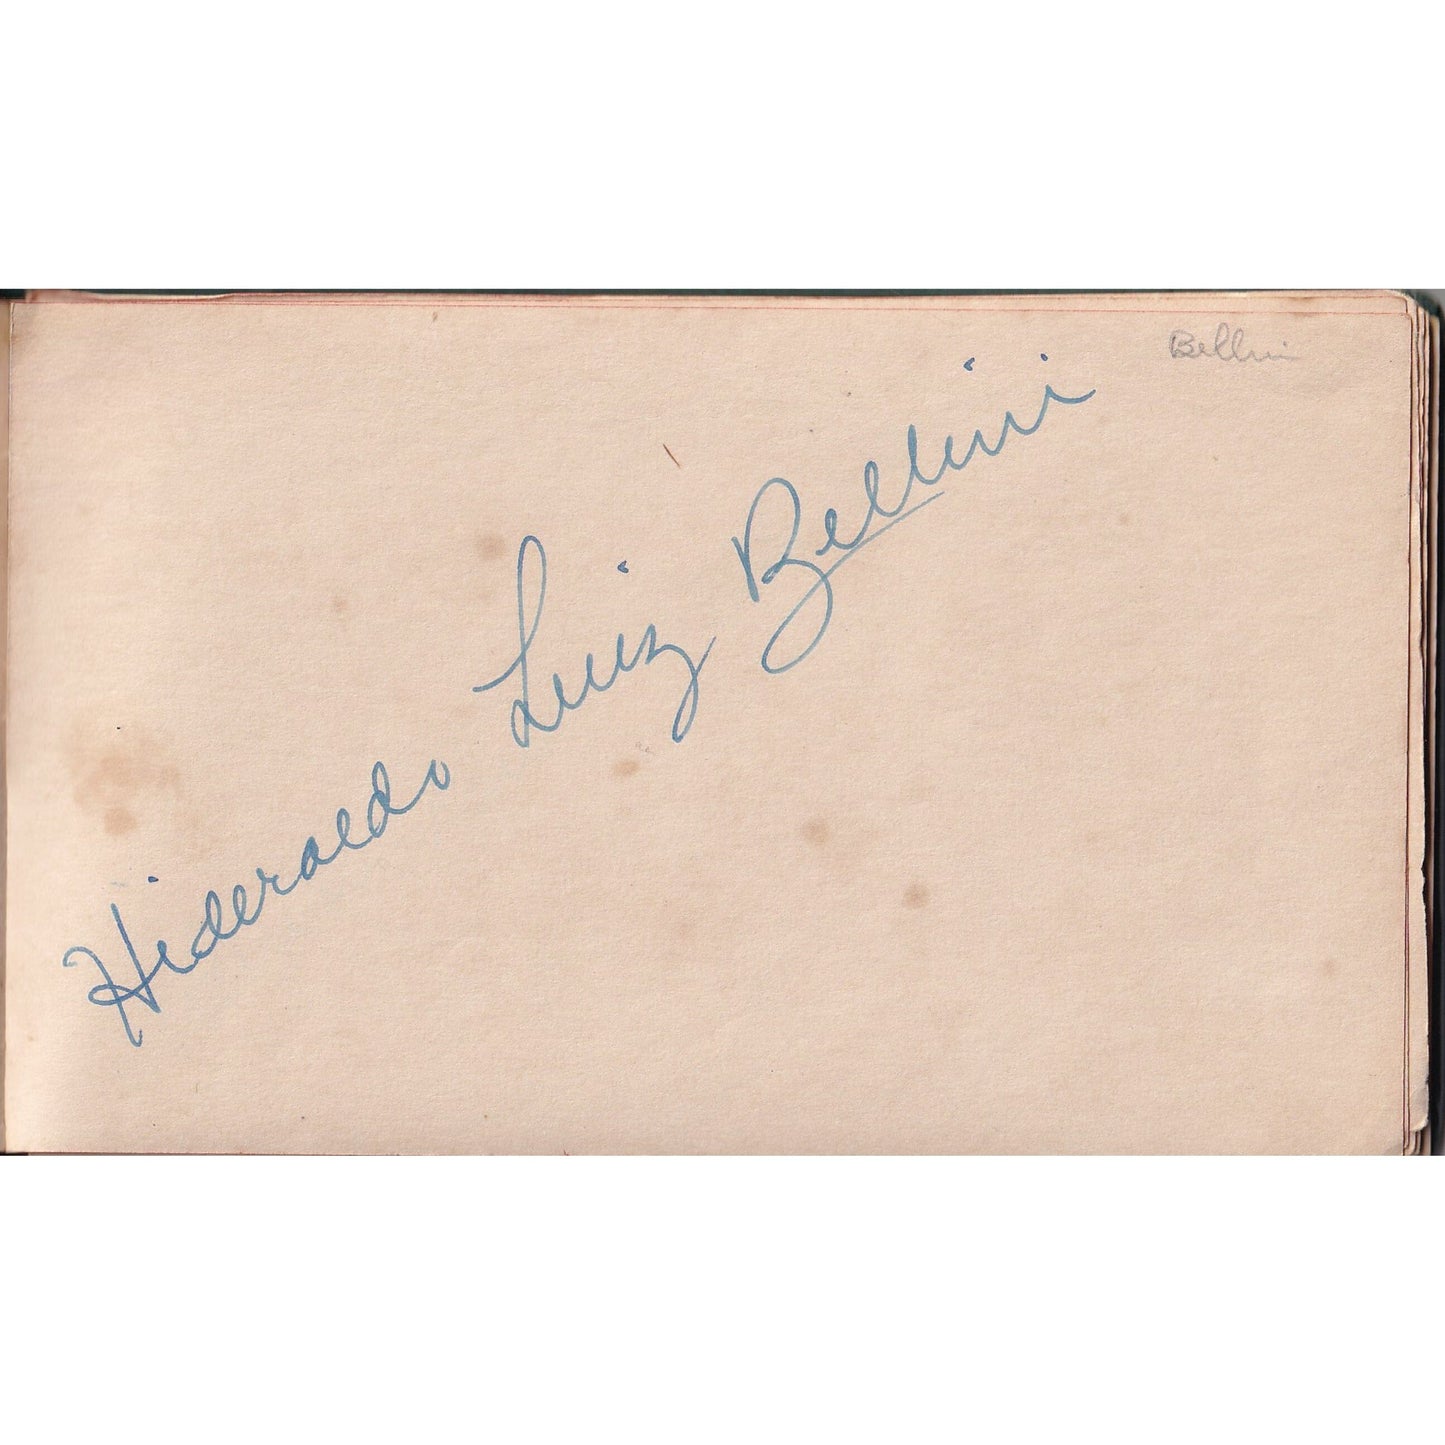 Bellini
Hideraldo Luiz Bellini